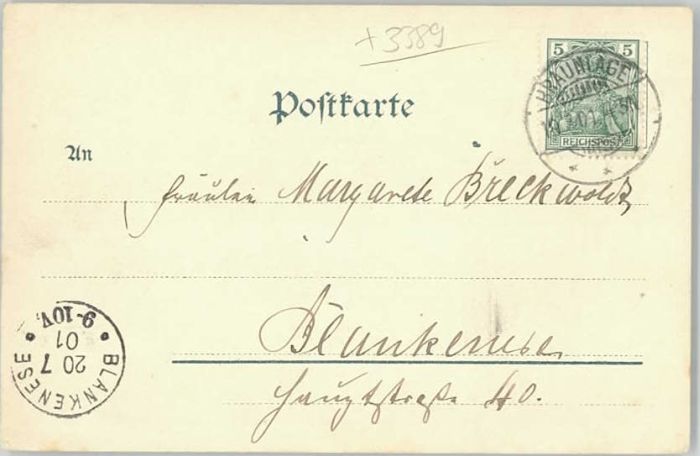 +3389
5 5
BRAUNLAGE
REICHSPOST
Postkarte
An
Fräulein Margarete Breckwoldt,
Blankenese
Hauptstraße 40.
BLANKENESE
20 7
01
9-10V.